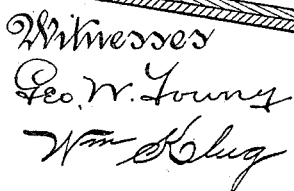 Witnesses
Geo. W. Young
Wm Klug